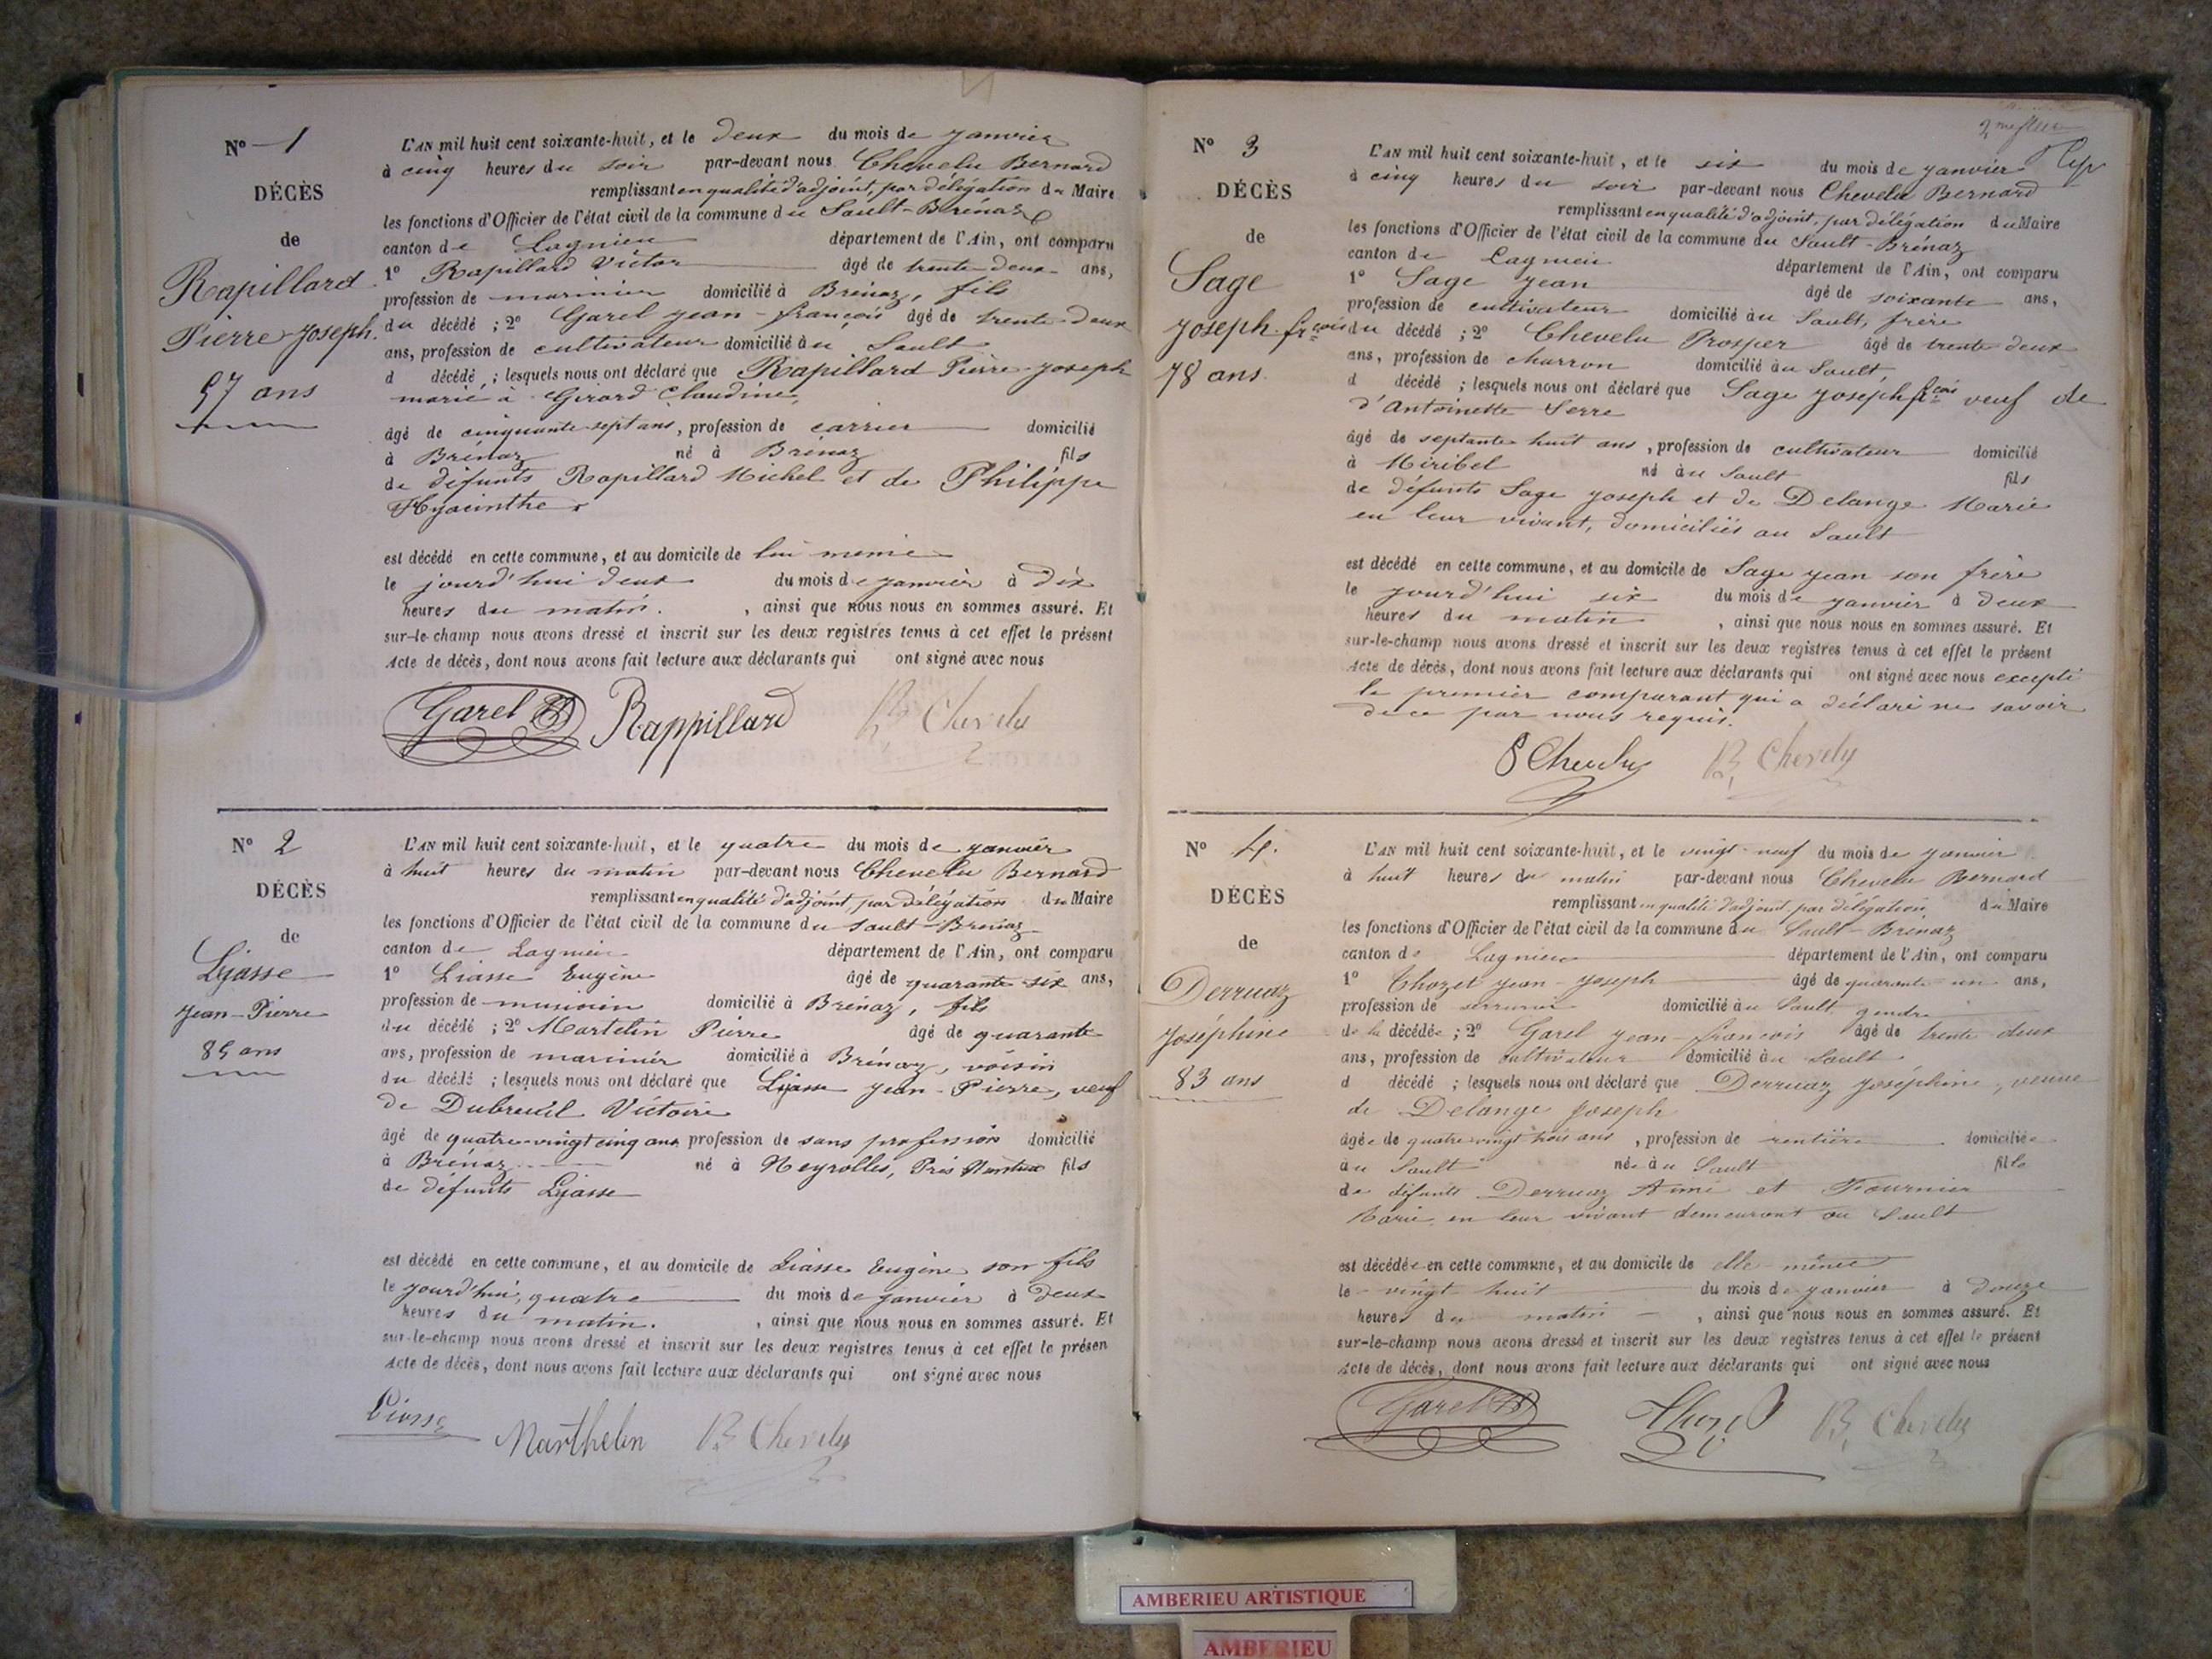 N° 1
DÉCÈS
de
Rapillard
Pierre-Joseph.
57 ans
L'AN mil huit cent soixante-huit, et le deux du mois de janvier
à cinq heures du soir par-devant nous Chevelu Bernard
remplissant en qualité d'adjoint, par délégation du Maire
les fonctions d'Officier de l'état civil de la commune du Sault-Brénaz
canton de Lagnieu département de l'Ain, ont comparu
1° Rapillard Victor âgé de trente-deux ans,
profession de marinier domicilié à Brénaz, fils
du décédé ; 2° Garel jean-françois âgé de trente-deux
ans, profession de cultivateur domicilié au Sault
d décédé ; lesquels nous ont déclaré que Rapillard Pierre-joseph
marié à Girard Claudine,
âgé de cinquante-sept ans, profession de carrier domicilié
à Brénaz né à Brénaz fils
de défunts Rapillard Michel et de Philippe
Hyacinthe
est décédé en cette commune, et au domicile de lui même
le jourd'hui deux du mois de janvier à dix
heures du matin. , ainsi que nous nous en sommes assuré. Et
sur-le-champ nous avons dressé et inscrit sur les deux registres tenus à cet effet le présent
Acte de décès, dont nous avons fait lecture aux déclarants qui ont signé avec nous
Garel Rappillard B. Chevelu
N° 2
DÉCÈS
de
Lyasse
Jean-Pierre
85 ans
L'AN mil huit cent soixante-huit, et le quatre du mois de janvier
à huit heures du matin par-devant nous Chevelu Bernard
remplissant en qualité d'adjoint, par délégation du Maire
les fonctions d'Officier de l'état civil de la commune du Sault-Brénaz
canton de Lagnieu département de l'Ain, ont comparu
1° Liasse Eugène âgé de quarante-six ans,
profession de domicilié à Brénaz, fils
du décédé ; 2° Martelin Pierre âgé de quarante
ans, profession de marinier domicilié à Brénaz, voisin
du décédé ; lesquels nous ont déclaré que Lyasse Jean-Pierre, veuf
de Dubreuil Victoire
âgé de quatre-vingt cinq ans profession de sans profession domicilié
à Brénaz né à Neyrolles, Près Nantua fils
de défunts Lyasse
est décédé en cette commune, et au domicile de Liasse Eugène son fils
le jourd'hui, quatre du mois de janvier à deux
heures du matin. , ainsi que nous nous en sommes assuré. Et
sur-le-champ nous avons dressé et inscrit sur les deux registres tenus à cet effet le présen
Acte de décès, dont nous avons fait lecture aux déclarants qui ont signé avec nous
Liasse Marthelin B. Chevelu
2me
N° 3
DÉCÈS
de
Sage
Joseph-frçois
78 ans.
L'AN mil huit cent soixante-huit, et le six du mois de janvier
à cinq heures du soir par-devant nous Chevelu Bernard
remplissant en qualité d'adjoint, par délégation du Maire
les fonctions d'Officier de l'état civil de la commune du Sault-Brénaz
canton de Lagnieu département de l'Ain, ont comparu
1° Sage Jean âgé de soixante ans,
profession de cultivateur domicilié au Sault, frère
du décédé ; 2° Chevelu Prosper âgé de trente deux
ans, profession de charron domicilié au Sault
d décédé ; lesquels nous ont déclaré que Sage Joseph frçois veuf de
d'Antoinette Serre
âgé de septante huit ans, profession de cultivateur domicilié
à Miribel né au Sault fils
de défunts Sage Joseph et de Delange Marie
en leur vivant, domiciliés au Sault
est décédé en cette commune, et au domicile de Sage Jean son frère
le jourd'hui six du mois de janvier à deux
heures du matin , ainsi que nous nous en sommes assuré. Et
sur-le-champ nous avons dressé et inscrit sur les deux registres tenus à cet effet le présent
Acte de décès, dont nous avons fait lecture aux déclarants qui ont signé avec nous excepté
le premier comparant qui a déclaré ne savoir
de ce par nous requis.
P Chevelu B. Chevelu
N° 4.
DÉCÈS
de
Derruaz
Joséphine
83 ans
L'AN mil huit cent soixante-huit, et le vingt-neuf du mois de janvier
à huit heures du matin par-devant nous Chevelu Bernard
remplissant en qualité d'adjoint, par délégation du Maire
les fonctions d'Officier de l'état civil de la commune du Sault-Brénaz
canton de Lagnieu département de l'Ain, ont comparu
1° Chozet Jean-Joseph âgé de quarante-un ans,
profession de serrurier domicilié au Sault, gendre
de la décédée ; 2° Garel Jean-francois âgé de trente deux
ans, profession de cultivateur domicilié au Sault
d décédé ; lesquels nous ont déclaré que Derruaz Joséphine, veuve
de Delange Joseph
âgée de quatre vingt trois ans , profession de rentière domiciliée
au Sault née au Sault fille
de défunts Derruaz Aimé et Fournier
Marie en leur vivant demeurant au Sault
est décédée en cette commune, et au domicile de elle-même
le vingt huit du mois de janvier à douze
heures du matin , ainsi que nous nous en sommes assuré. Et
sur-le-champ nous avons dressé et inscrit sur les deux registres tenus à cet effet le présent
Acte de décès, dont nous avons fait lecture aux déclarants qui ont signé avec nous
Garel Chozet B. Chevelu
AMBERIEU ARTISTIQUE
AMBERIEU